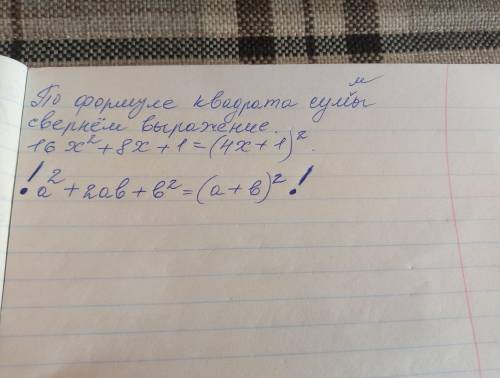 По формуле квадрата суммы
свернём выражение.
16x² + 8x + 1 = (4x + 1)².
! a² + 2ab + b² = (a + b)² !